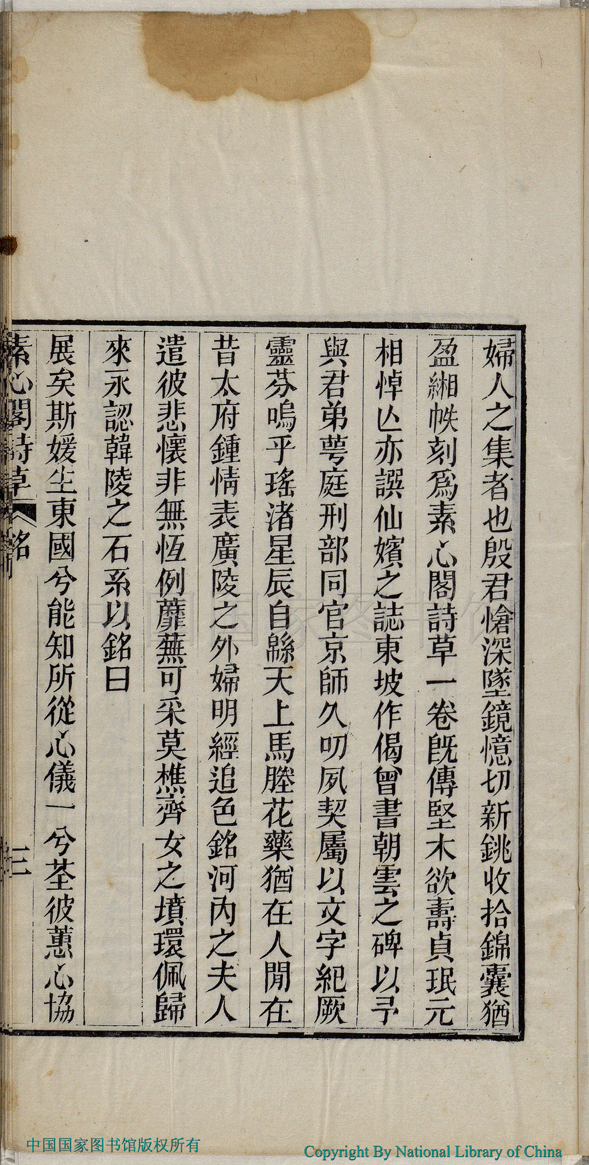 婦人之集者也殷君愴深墜鏡憶切新銚收拾錦囊猶
盈緗帙刻爲素心閣詩草一卷旣傳堅木欲壽貞珉元
相悼亾亦譔仙嬪之誌東坡作偈曾書朝雲之碑以予
與君弟萼庭刑部同官京師久叨夙契屬以文字紀厥
靈芬嗚乎瑤渚星辰自緜天上馬塍花藥猶在人閒在
昔太府鍾情表廣陵之外婦明經追色銘河內之夫人
遣彼悲懷非無恆例蘼蕪可采莫樵齊女之墳環佩歸
來永認韓陵之石系以銘曰
展矣斯媛生東國兮能知所從心儀一兮荃彼蕙心協
素心閣詩草 銘 三
中国国家图书馆
中国国家图书馆版权所有
Copyright By National Library of China